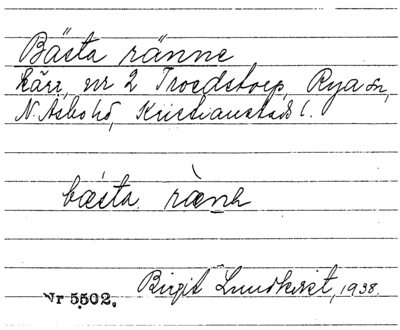 Bästa ränne
kärr, nr 2 Troedstorp, Rya sn,
N. Åsbo hd, Kristianstads l.
bæsta ræ̀nə
Birgit Lundkvist, 1938.
Nr 5502.